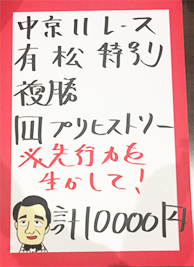 中京11レース
有松特別
複勝
⑪プリヒストリー
※先行力を
生かして!
計10000円